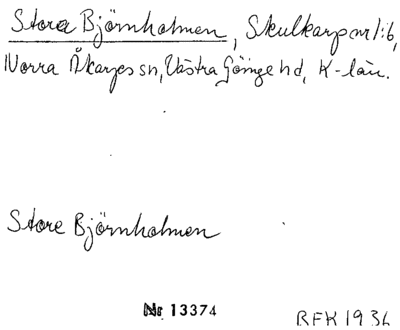 Stora Björnholmen, Skulkarp nr 1:6,
Norra Åkarps sn, Västra Göinge hd, K-län.
Store Björnholmen
Nr 13374
RFK 1936